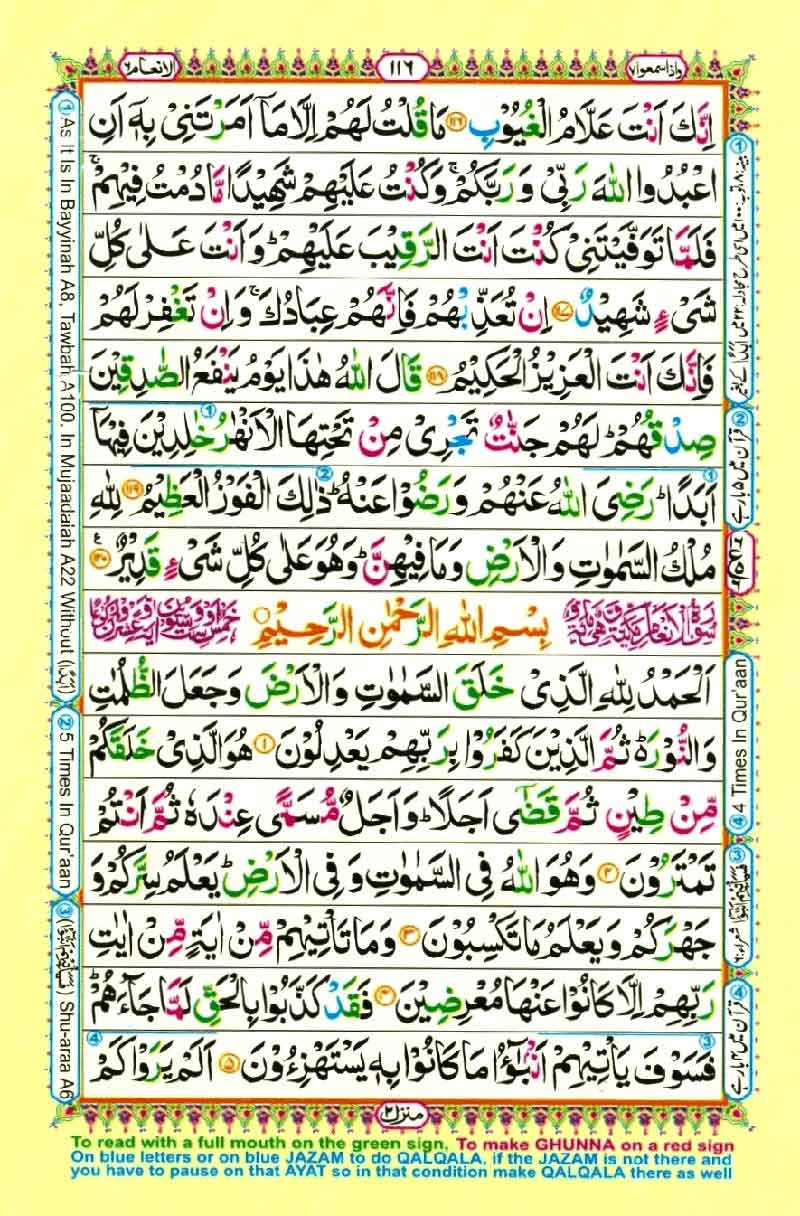 واذاسمعوا٧
١١٦
الانعام٦
اِنَّكَ اَنْتَ عَلَّامُ الْغُيُوْبِ ﴿۱۱۶﴾ مَا قُلْتُ لَهُمْ اِلَّا مَاۤ اَمَرْتَنِیْ بِهٖۤ اَنِ
اعْبُدُوا اللّٰهَ رَبِّیْ وَ رَبَّكُمْ ۚ وَ كُنْتُ عَلَيْهِمْ شَهِيْدًا مَّا دُمْتُ فِيْهِمْ ۚ
فَلَمَّا تَوَفَّيْتَنِیْ كُنْتَ اَنْتَ الرَّقِيْبَ عَلَيْهِمْ ؕ وَ اَنْتَ عَلٰی كُلِّ
شَیْءٍ شَهِيْدٌ ﴿۱۱۷﴾ اِنْ تُعَذِّبْهُمْ فَاِنَّهُمْ عِبَادُكَ ۚ وَ اِنْ تَغْفِرْ لَهُمْ
فَاِنَّكَ اَنْتَ الْعَزِيْزُ الْحَكِيْمُ ﴿۱۱۸﴾ قَالَ اللّٰهُ هٰذَا يَوْمُ يَنْفَعُ الصّٰدِقِيْنَ
صِدْقُهُمْ ؕ لَهُمْ جَنّٰتٌ تَجْرِیْ مِنْ تَحْتِهَا الْاَنْهٰرُ خٰلِدِيْنَ فِيْهَاۤ
اَبَدًا ؕ رَضِیَ اللّٰهُ عَنْهُمْ وَ رَضُوْا عَنْهُ ؕ ذٰلِكَ الْفَوْزُ الْعَظِيْمُ ﴿۱۱۹﴾ لِلّٰهِ
مُلْكُ السَّمٰوٰتِ وَ الْاَرْضِ وَ مَا فِيْهِنَّ ؕ وَ هُوَ عَلٰی كُلِّ شَیْءٍ قَدِيْرٌ ﴿۱۲۰﴾
بِسْمِ اللّٰهِ الرَّحْمٰنِ الرَّحِيْمِ
اَلْحَمْدُ لِلّٰهِ الَّذِیْ خَلَقَ السَّمٰوٰتِ وَ الْاَرْضَ وَ جَعَلَ الظُّلُمٰتِ
وَ النُّوْرَ ؕ ثُمَّ الَّذِيْنَ كَفَرُوْا بِرَبِّهِمْ يَعْدِلُوْنَ ﴿۱﴾ هُوَ الَّذِیْ خَلَقَكُمْ
مِّنْ طِيْنٍ ثُمَّ قَضٰۤی اَجَلًا ؕ وَ اَجَلٌ مُّسَمًّی عِنْدَهٗ ثُمَّ اَنْتُمْ
تَمْتَرُوْنَ ﴿۲﴾ وَ هُوَ اللّٰهُ فِی السَّمٰوٰتِ وَ فِی الْاَرْضِ ؕ يَعْلَمُ سِرَّكُمْ وَ
جَهْرَكُمْ وَ يَعْلَمُ مَا تَكْسِبُوْنَ ﴿۳﴾ وَ مَا تَاْتِيْهِمْ مِّنْ اٰيَةٍ مِّنْ اٰيٰتِ
رَبِّهِمْ اِلَّا كَانُوْا عَنْهَا مُعْرِضِيْنَ ﴿۴﴾ فَقَدْ كَذَّبُوْا بِالْحَقِّ لَمَّا جَآءَهُمْ ؕ
فَسَوْفَ يَاْتِيْهِمْ اَنْۢبٰٓؤُا مَا كَانُوْا بِهٖ يَسْتَهْزِءُوْنَ ﴿۵﴾ اَلَمْ يَرَوْا كَمْ
منزل۲
① As It Is In Bayyinah A8, Tawbah A100, In Mujaadalah A22 Without (اَبَدًا)
② 5 Times In Qur'aan
③ (فَسَيَاْتِيْهِمْ اَنْۢبٰٓؤُا) Shu-araa A6
② قرآن میں ۵ بار ہے
④ 4 Times In Qur'aan
④ قرآن میں ۴ بار ہے
To read with a full mouth on the green sign, To make GHUNNA on a red sign
On blue letters or on blue JAZAM to do QALQALA, if the JAZAM is not there and
you have to pause on that AYAT so in that condition make QALQALA there as well